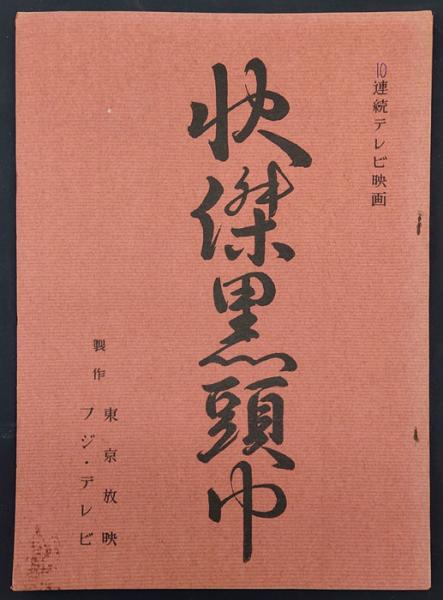 10連続テレビ映画
快傑黒頭巾
製作
東京放映
フジ・テレビ